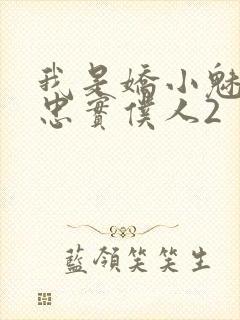 我是嬌小魅
忠實僕人2
藍領笑笑生